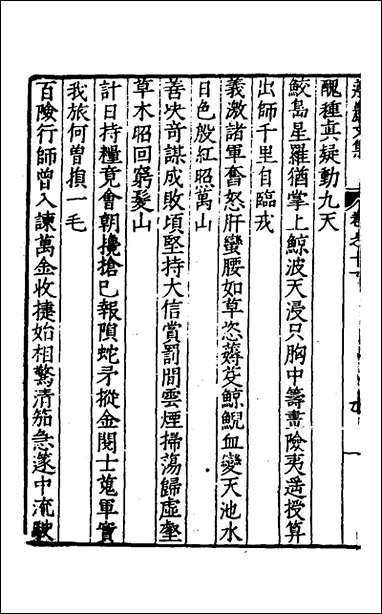 醜種真疑動九天
鮫島星羅猶掌上鯨波天浸只胸中籌畫險夷遥授算
出師千里自臨戎
義激諸軍奮怒肝蠻腰如草恣薙芟鯨鯢血變天池水
日色殷紅照萬山
善决苛謀成敗頃堅持大信賞罰間雲煙掃蕩歸虛壑
草木昭回窮髮山
計日持糧竟會朝攙搶已報隕蛇矛摐金閱士蒐軍實
我旅何曾損一毛
百險行師曾入諫萬金收捷始相驚清笳急遂中流駛